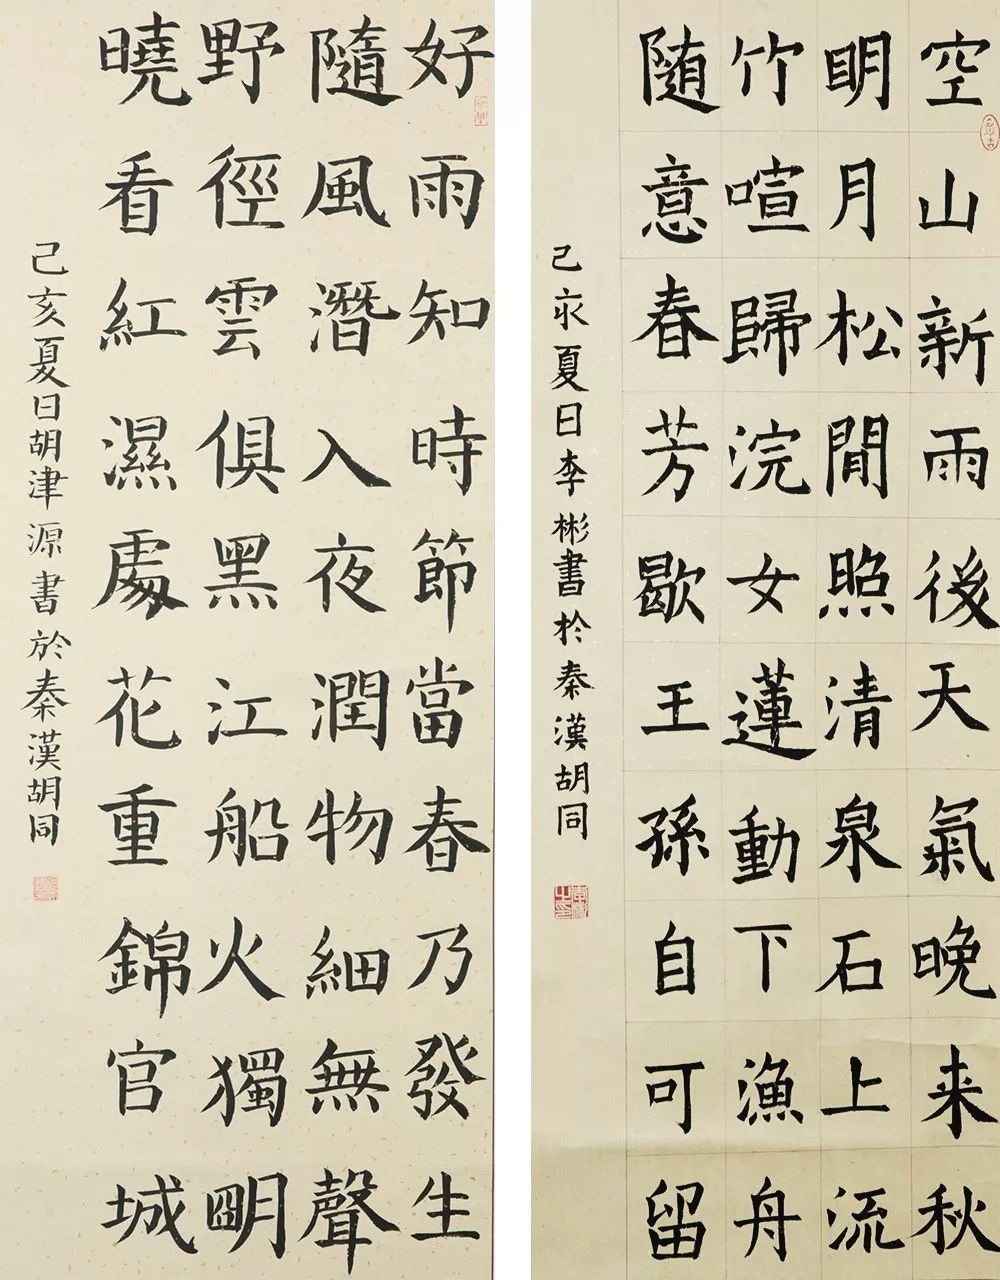 空山新雨後天氣晚来秋
眀月松閒照清泉石上流
竹喧歸浣女蓮動下漁舟
随意春芳歇王孫自可留
己亥夏日李彬書於秦漢胡同
好雨知時節當春乃發生
隨風潛入夜潤物細無聲
野徑雲俱黑江船火獨朙
曉看紅濕處花重錦官城
己亥夏日胡津源書於秦漢胡同